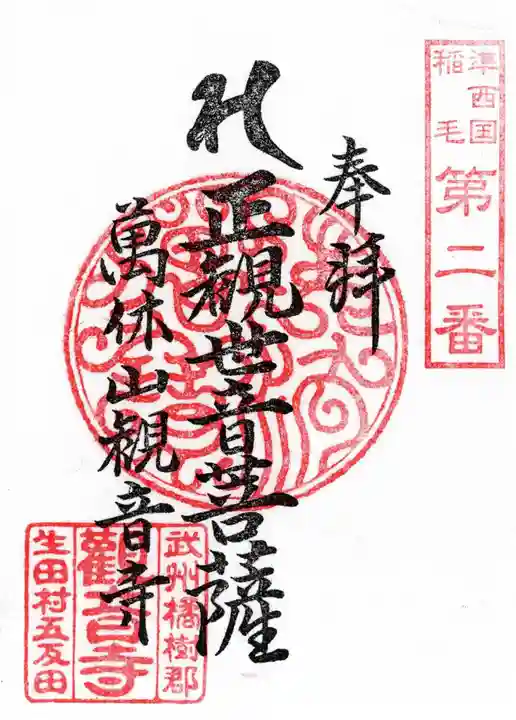 準西国
稲毛
第二番
奉拝
正観世音菩薩
萬休山観音寺
武州橘樹郡
觀音寺
生田村五反田